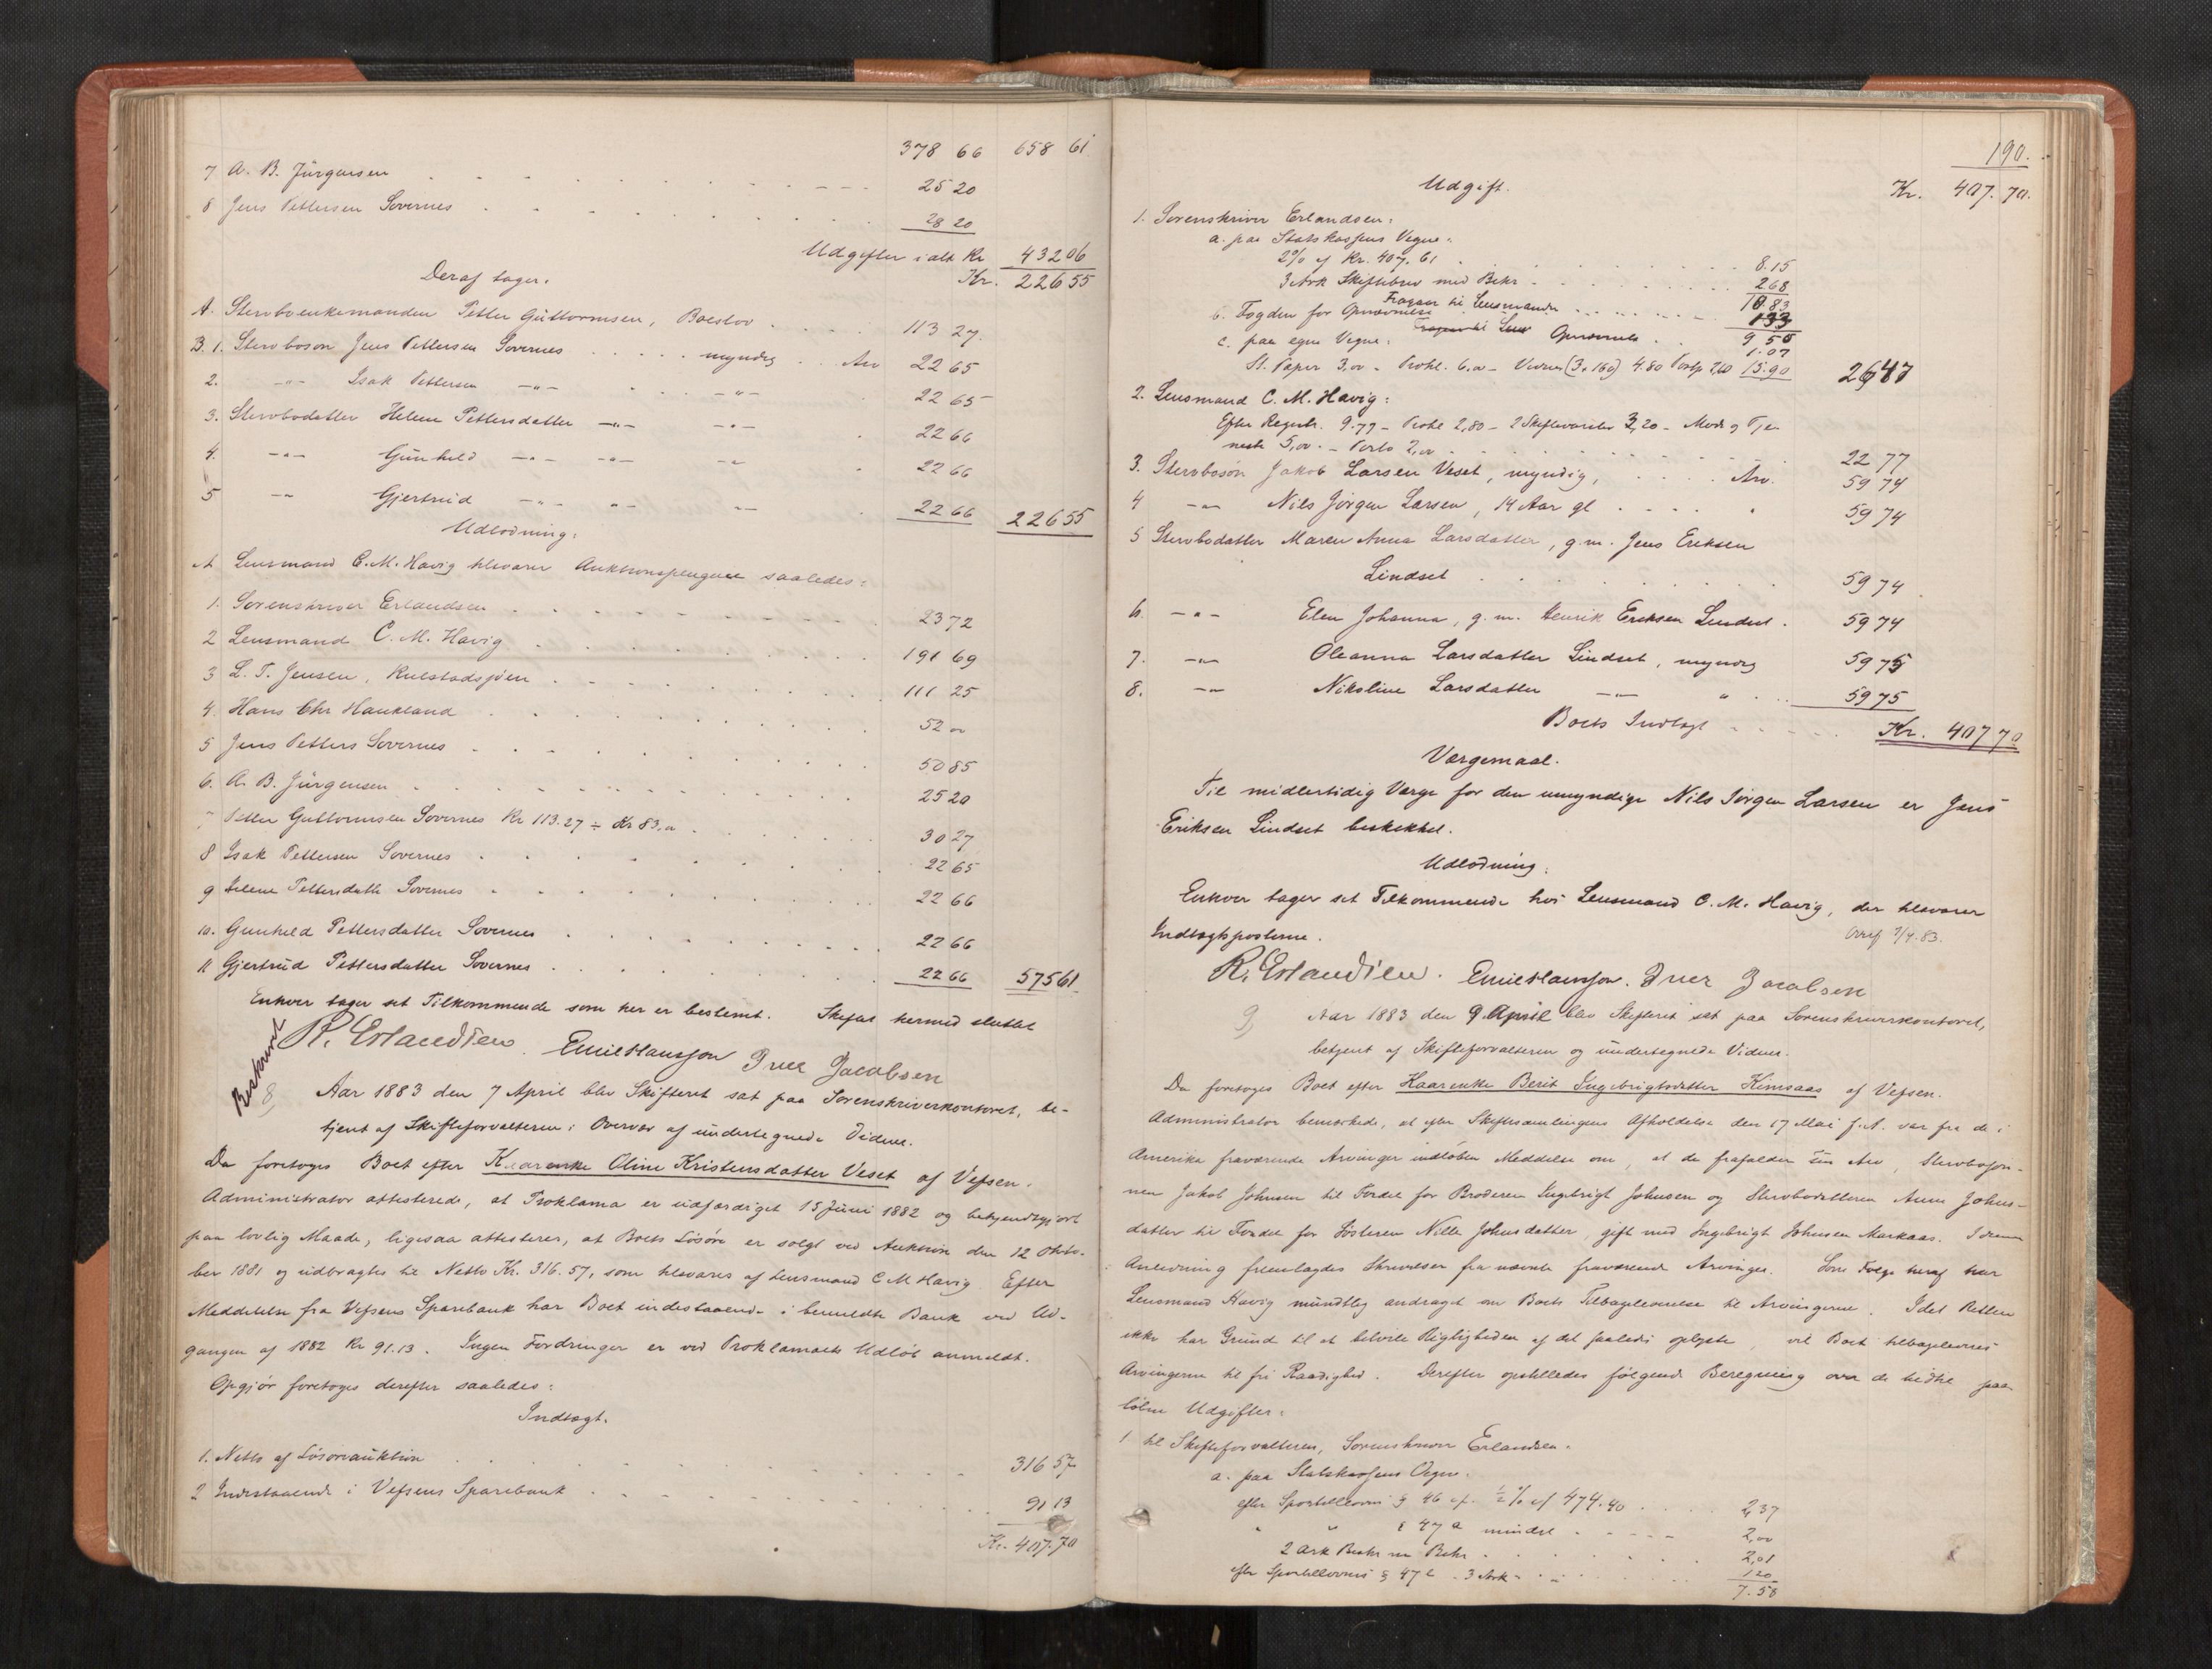 378 66 658 61
7 A. B. Jürgensen 25 20
8 Jens Pettersen Sovernes 28 20
Udgifter i alt Kr 432 06
Kr. 226 55
Deraf tager:
A. Stervboenkemanden Petter Guttormsen, Boeslov 113 27
B. 1. Stervbosøn Jens Pettersen Sovernes myndig Arv 22 65
2. -"- Isak Pettersen -"- -"- 22 65
3. Stervbodatter Helene Pettersdatter -"- -"- 22 66
4. -"- Gunhild -"- -"- -"- 22 66
5 -"- Gjertrud -"- -"- -"- 22 66 226 55
Udlodning:
A Lensmand C. M. Havig tilsvarer Auktionspengene saaledes:
1. Sorenskriver Erlandsen 23 72
2 Lensmand C. M. Havig 191 69
3 L. T. Jensen, 111 25
4. Hans Chr Haukland 52 00
5 Jens Petters Sovernes 50 85
6. A. B. Jürgensen 25 20
7 Petter Guttormsen Sovernes Kr 113.27 ÷ Kr 83,00 30 27
8 Isak Pettersen Sovernes 22 65
9 Helene Pettersdatte Sovernes 22 66
10. Gunhild Pettersdatter Sovernes 22 66
11 Gjertrud Pettersdatter Sovernes 22 66 575 61
Enhver tager sit Tilkommende som her er bestemt. Skiftet hermed sluttet
R. Erlandsen. Emil Hansson Iver Jacobsen
Beskrevet
8 Aar 1883 den 7 April blev Skifteret sat paa Sorenskriverkontoret, be-
tjent af Skifteforvalteren i Overvær af undertegnede Vidner.
Da foretoges Boet efter Kaarenke Oline Kristensdatter Veset af Vefsen.
Administrator attesterede, at Proklama er udfærdiget 15 Juni 1882 og bekjendtgjort
paa lovlig Maade, ligesaa attesteres, at Boets Løsøre er solgt ved Auktion den 12 Okto-
ber 1881 og udbragtes til Netto Kr. 316.57, som tilsvares af Lensmand C M Havig. Efter
Meddelelse fra Vefsens Sparebank har Boet indestaaende i bemeldte Bank ved Ud-
gangen af 1882 Kr 91.13. Ingen Fordringer er ved Proklamaets Udløb anmeldt.
Opgjør foretoges derefter saaledes:
Indtægt.
1. Netto af Løsøreauktion 316 57
2 Indestaaende i Vefsens Sparebank 91 13
Kr. 407.70
190.
Udgift. Kr. 407.70.
1. Sorenskriver Erlandsen:
a. paa Statskassens Vegne:
2% af Kr. 407.61 8.15
3 Ark Skiftebrev med Bekr 2 68
10.83
b. Fogden for Opnævnelse til Lensmanden 133
c. paa egne Vegne: Opnævnelse 9 50
1.07
St. Papir 3,00 - Prokl. 6,00 - Vidner (3 a 160) 4.80 Porto 2,10 15.90 26 47
2. Lensmand C. M. Havig:
Efter Registr. 9.77 - Prokl 2,80 - 2 Skiftevarsler 3,20 - Møde og Tje-
neste 5,00. - Porto 2,00 22 77
3. Stervbosøn Jakob Larsen Veset, myndig, Arv. 59 74
4 -"- Nils Jørgen Larsen, 14 Aar gl " 59 74
5 Stervbodatter Maren Anna Larsdatter, g.m. Jens Eriksen
Lindset 59 74
6. -"- Elen Johanna, g.m. Henrik Eriksen Lindset 59 74
7. -"- Oleanna Larsdatter Lindset, myndig 59 75
8. -"- Nikoline Larsdatter -"- " 59 75
Boets Indtægt Kr. 407 70
Værgemaal.
Til midlertidig Værge for den umyndige Nils Jørgen Larsen er Jens
Eriksen Lindset beskikket.
Udlodning:
Enhver tager sit Tilkommende hos Lensmand C. M. Havig, der tilsvarer
Indtægtsposterne. 7/4.83.
R. Erlandsen. Emil Hansson. Iver Jacobsen
9, Aar 1883 den 9. April blev Skifteret sat paa Sorenskriverkontoret,
betjent af Skifteforvalteren og undertegnede Vidner.
Da foretoges Boet efter Kaarenke Berit Ingebrigtsdatter Kimsaas af Vefsen.
Administrator bemærkede, at efter Skiftesamlingens Afholdelse den 17 Mai f.A. var fra de i
Amerika fraværende Arvinger indløben Meddelse om, at de frafalder sin Arv, Stervbosøn-
nen Jakob Johnsen til Fordel for Broderen Ingebrigt Johnsen og Stervbodatteren Anne Johns-
datter til Fordel for Søsteren Nille Johnsdatter, gift med Ingebrigt Johnsen Markaas. I denne
Anledning fremlagdes Skrivelser fra nævnte fraværende Arvinger. Som Følge heraf har
Lensmand Havig mundtlig andraget om Boets Tilbagelevering til Arvingerne. Idet Retten
ikke har Grund til at betvile Rigtigheden af det saaledes oplyste, vil Boet tilbageleveres
Arvingerne til fri Raadighed. Derefter opstilledes følgende Beregning over de hidtil paa-
løbne Udgifter:
1. til Skifteforvalteren, Sorenskriver Erlandsen:
a. paa Statskassens Vegne:
efter Sportelloven § 46 cf. ½% af 474.40 2,37
" " § 47 a mindst 2,00
2 Ark Beskr m Bekr 2,01
efter Sportellovens § 47 3 Ark 1 20
7.58